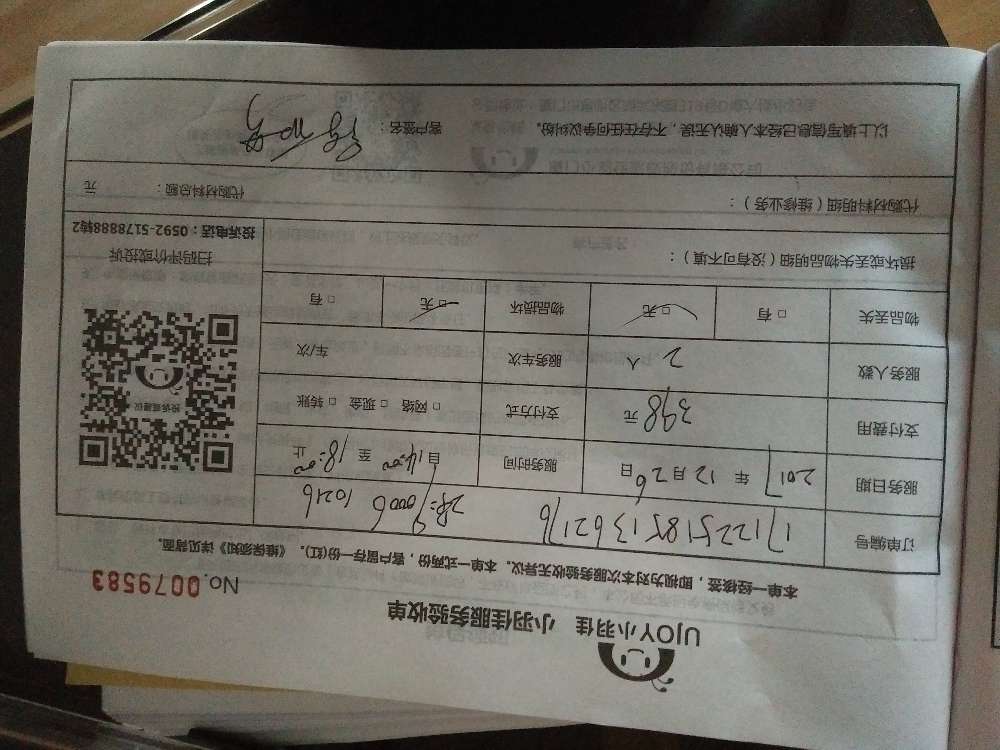 UJOY小羽佳 小羽佳服务验收单
No. 0079583
本单一经核签，即视为对本次服务验收无异议。本单一式两份，客户留存一份(红)。《维保须知》详见背面。
订单编号 1712251851362176
服务日期 2017 年 12 月 26 日 服务时间 自 14:00 至 18:00 止
支付费用 398 元 支付方式 □ 网络 □ 现金 □ 转账
服务人数 2 人 服务车次 车/次
物品丢失 □ 有 □ 无 物品损坏 □ 无 □ 有
投诉或建议
扫码评价或投诉
投诉电话：0592-5178888转2
损坏或丢失物品明细（没有可不填）：
代购材料明细（维修业务）： 代购材料总额： 元
以上填写信息已经本人确认无误，不存在任何争议纠纷。 客户签名：